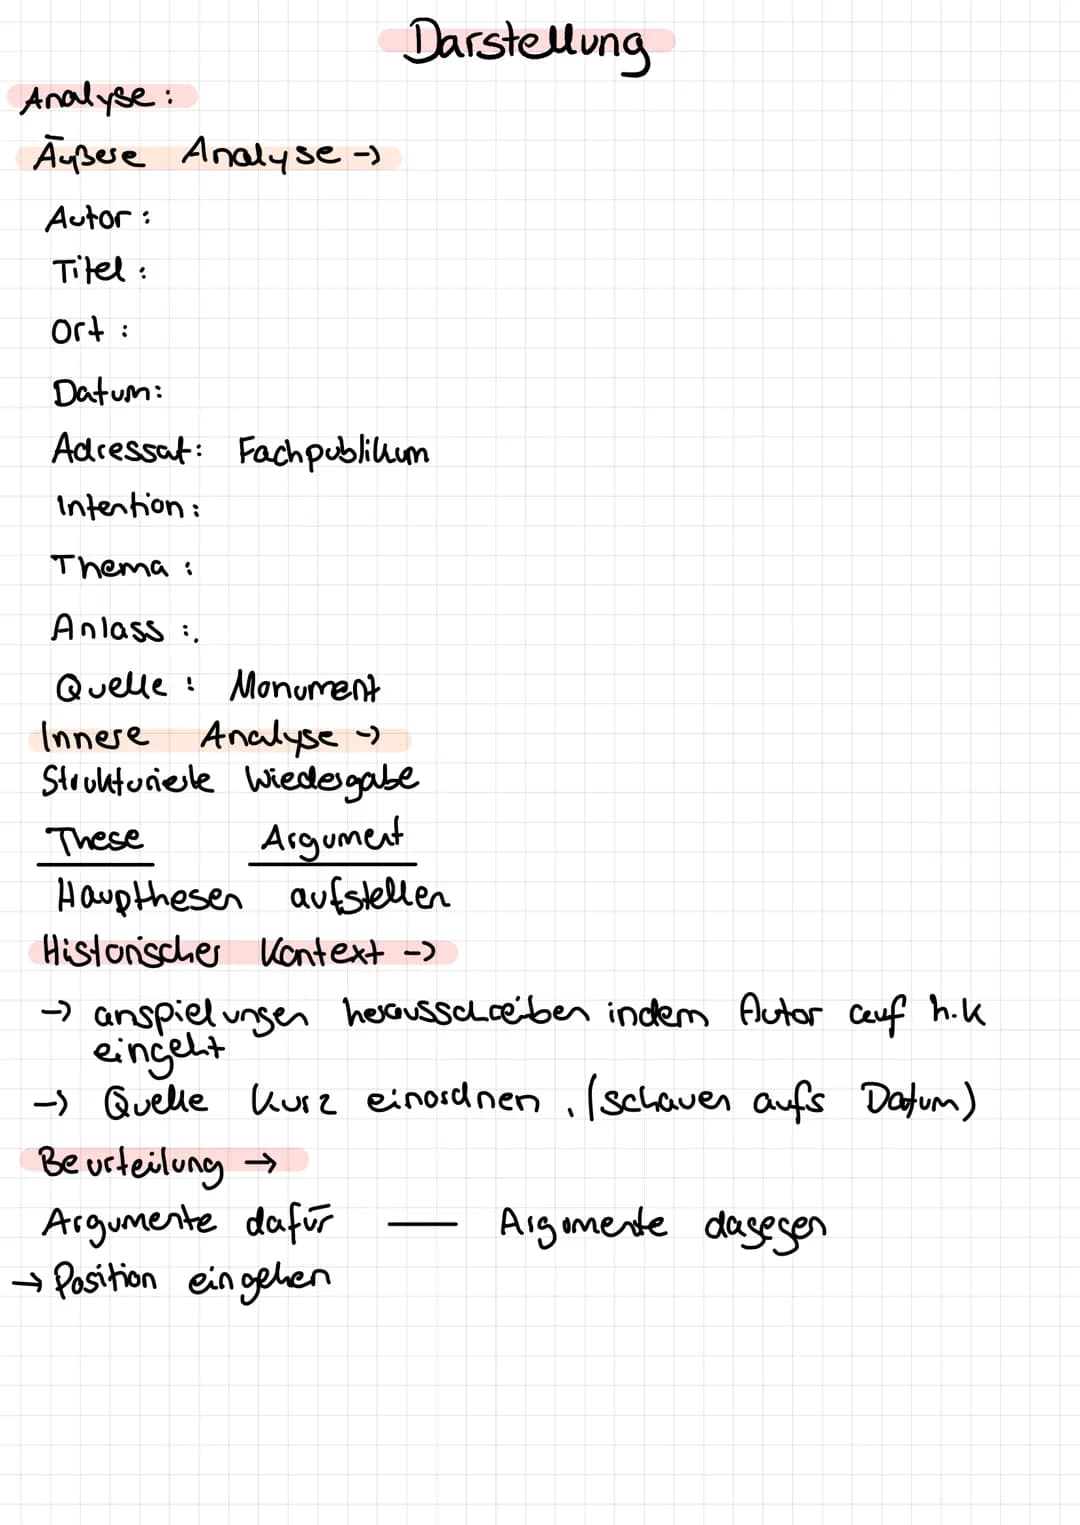 Darstellung
Analyse:
Äußere Analyse ->
Autor:
Titel:
Ort:
Datum:
Adressat: Fachpublikum
Intention:
Thema:
Anlass:.
Quelle: Monument
Innere Analyse ->
Strukturierte Wiedergabe
These Argument
Haupthesen aufstellen
Historischer Kontext ->
-> anspielungen herausschreiben indem Autor auf h.k
eingeht
-> Quelle kurz einordnen. (schauen aufs Datum)
Beurteilung →
Argumente dafür — Argumente dagegen
→ Position eingehen